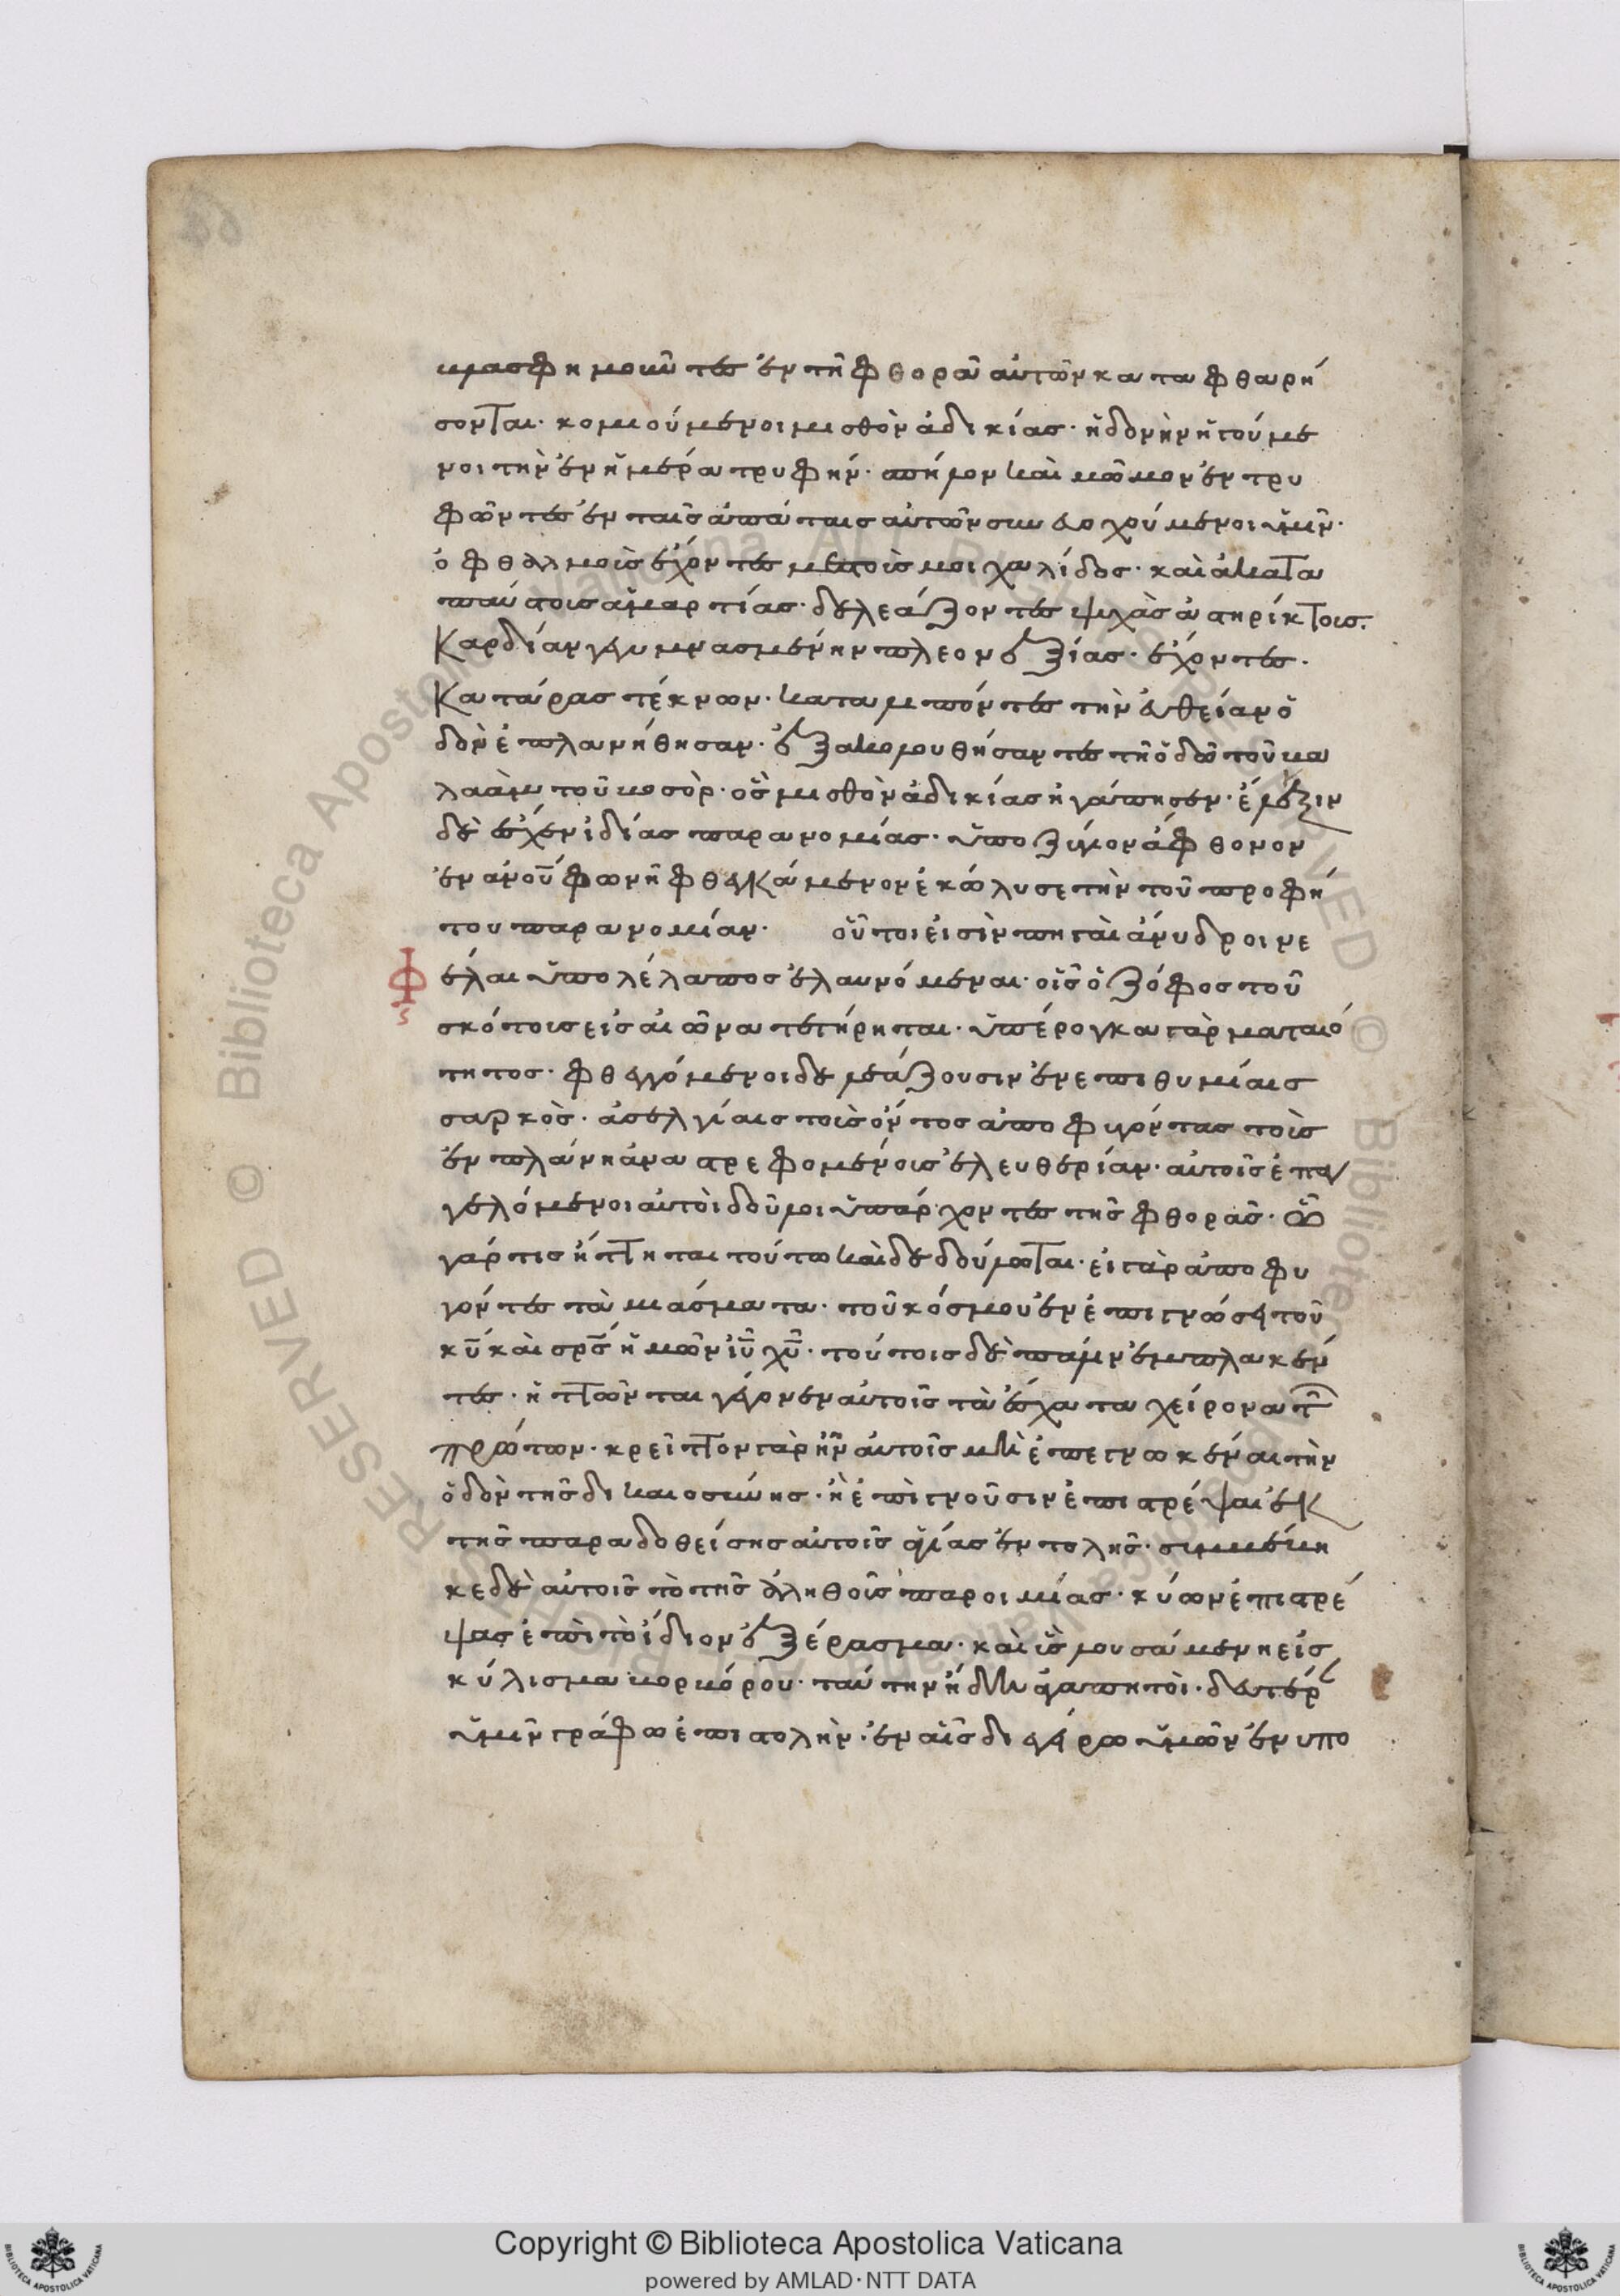 βλασφημοῦντες ἐν τῆ φθορᾶ αὐτῶν καταφθαρή
σονται· κομιούμενοι μισθὸν ἀδικίας· ἡδονὴν ἡγούμε
νοι τὴν ἐν ἡμέρα τρυφήν· σπίλοι καὶ μῶμοι ἐντρυ
φῶντες ἐν ταῖς ἀπάταις αὐτῶν συνευωχούμενοι ὑμῖν·
ὀφθαλμοὺς ἔχοντες μεστοὺς μοιχαλίδος· καὶ ἀκατα
παύστους ἁμαρτίας· δελεάζοντες ψυχὰς ἀστηρίκτους·
Καρδίαν γεγυμνασμένην πλεονεξίας· ἔχοντες·
Κατάρας τέκνων· καταλιπόντες τὴν εὐθείαν ὁ
δὸν ἐπλανήθησαν· ἐξακολουθήσαντες τῆ ὁδῶ τοῦ βα
λαὰμ τοῦ βοσὸρ· ὃς μισθὸν ἀδικίας ἠγάπησεν· ἔλεξιν
δὲ ἔσχεν ἰδίας παρανομίας· ὑποζύγιον ἄφθονον
ἐν ἀνοῦ φωνῆ φθεγξάμενον ἐκώλυσε τὴν τοῦ προφή
του παρανομίαν· οὗτοι εἰσὶν πηγαὶ ἄνυδροι νε
φέλαι ὑπὸ λέλαπος ἐλαυνόμεναι· οἷς ὁ ζόφος τοῦ
σκότους εἰς αἰῶνα τετήρηται· ὑπέρογκα γὰρ ματαιό
τητος· φθεγγόμενοι δελεάζουσιν ἐν ἐπιθυμίαις
σαρκὸς· ἀσελγίαις τοὺς ὄντος ἀποφυγόντας τοὺς
ἐν πλάνη ἀναστρεφομένους ἐλευθερίαν· αὐτοῖς ἐπαγ
γελόμενοι αὐτοὶ δοῦλοι ὑπάρχοντες τῆς φθορᾶς· ὧ
γάρ τις ἥττηται τούτω καὶ δεδούλωται· εἰ γὰρ ἀποφυ
γόντες τὰ μιάσματα· τοῦ κόσμου ἐν ἐπιγνώσει τοῦ
κυ καὶ σρς ἡμῶν ιυ χυ· τούτοις δὲ πάλιν ἐμπλακέν
τες· ἡττῶνται γέγονεν αὐτοῖς τὰ ἔσχατα χείρονα τῶν
πρώτων· κρεῖττον γὰρ ἦν αὐτοῖς μὴ ἐπεγνωκέναι τὴν
ὁδὸν τῆς δικαιοσύνης· ἢ ἐπιγνοῦσιν ἐπιστρέψαι ἐκ
τῆς παραδοθείσης αὐτοῖς ἁγίας ἐντολῆς· συμβέβη
κε δὲ αὐτοῖς τὸ τῆς ἀληθοῦς παροιμίας· κύων ἐπιστρέ
ψας ἐπὶ τὸ ἴδιον ἐξέρασμα· καὶ ὗς λουσάμενη εἰς
κύλισμα βορβόρου· ταύτην ἤδη ἀγαπητοὶ· δευτέραν
ὑμῖν γράφω ἐπιστολὴν· ἐν αἷς διεγείρω ὑμῶν ἐν υπο
Copyright © Biblioteca Apostolica Vaticana
powered by AMLAD·NTT DATA